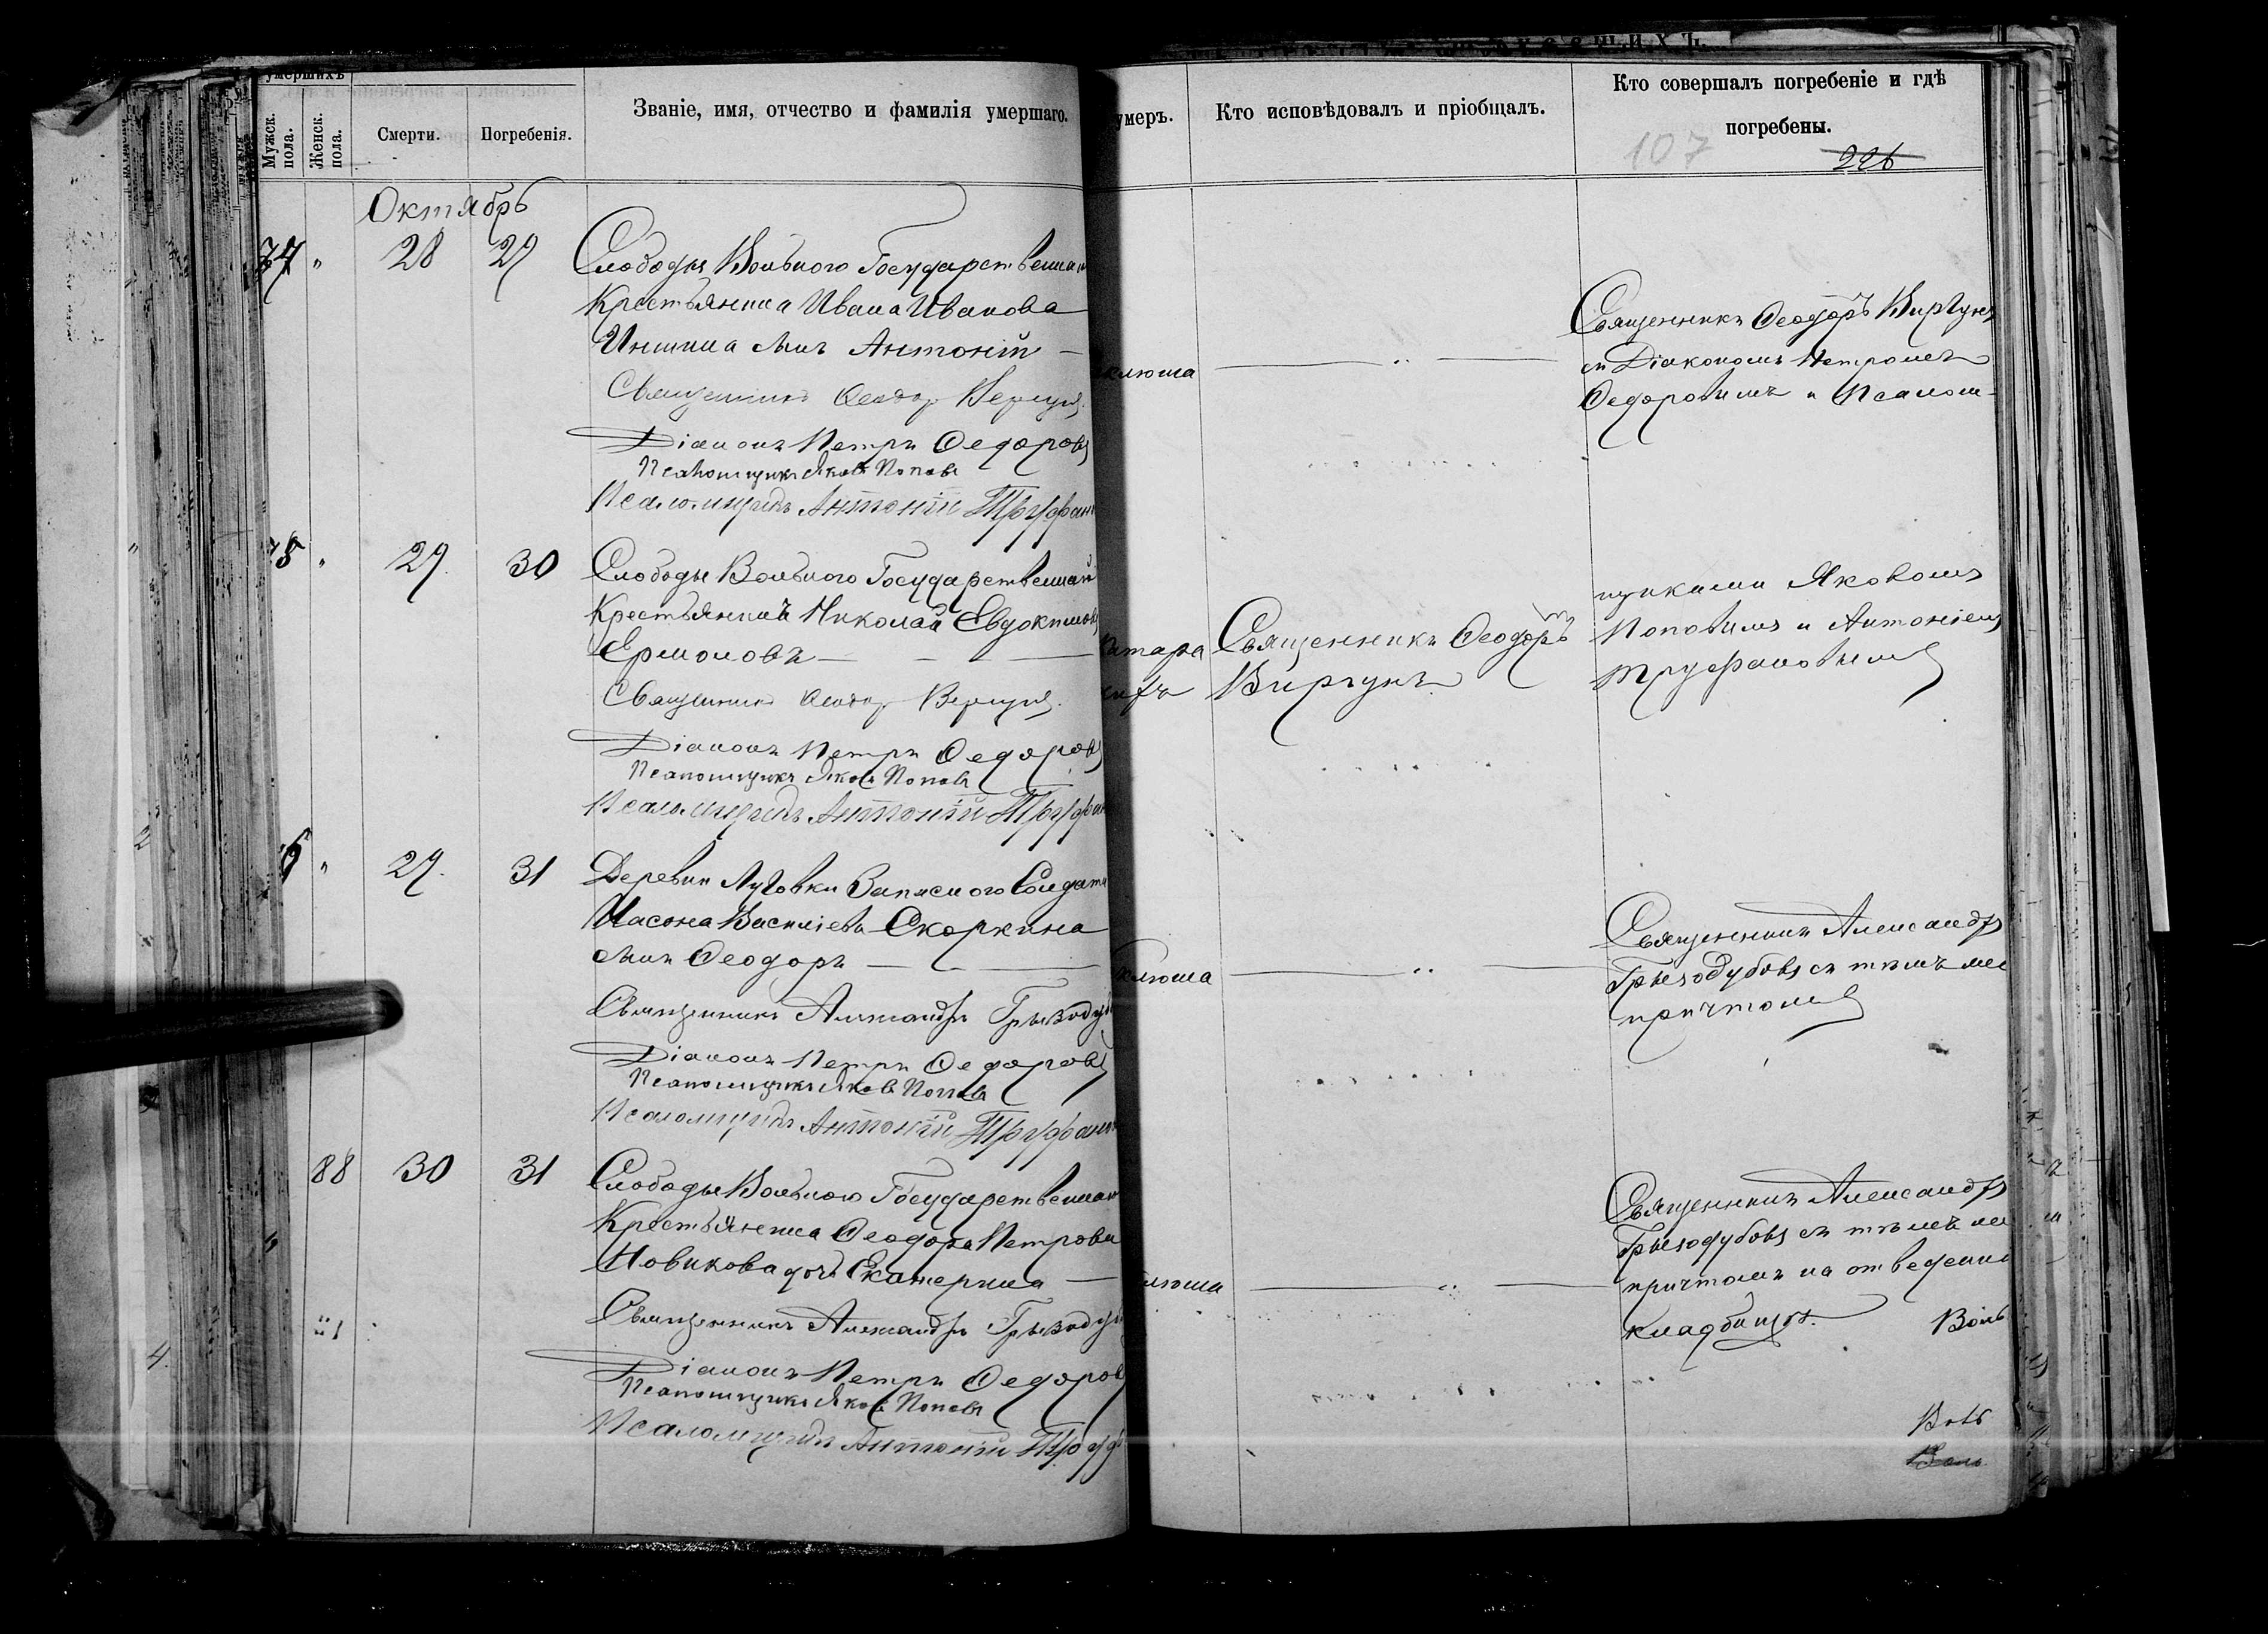 умершихъ
Мужск. пола.
Женск. пола.
Смерти.
Погребенія.
Званіе, имя, отчество и фамилія умершаго.
умеръ.
Кто исповѣдовалъ и пріобщалъ.
Кто совершалъ погребеніе и гдѣ
погребены.
107
226
Октябрь
74 " 28 29 Слободы Вольного Государственна
Крестьянина Ивана Иванова
сынъ Антоній —
Священникъ Ѳеодор Вергунъ
Діаконъ Петръ Ѳедоровъ
Псаломщикъ Яковъ Поповъ
Псаломщикъ Антоній Труфан
клюша
Священникъ Ѳеодоръ Виргунъ
съ Діакономъ Петромъ
Ѳедоровымъ и Псалом-
75 " 29 30 Слободы Вольного Государственный
Крестьянинъ Николай Евдокимовъ
Ермоловъ — — —
Священникъ Ѳеодор Вергунъ
Діаконъ Петръ Ѳедоровъ
Псаломщикъ Яковъ Поповъ
Псаломщикъ Антоній Труфан
Священникъ Ѳеодоръ
Виргунъ
щиками Яковомъ
Поповымъ и Антоніемъ
Труфановымъ
6 " 29 31 Деревни Луговки Запасного Солдата
Иасона Василіева Скоркина
сынъ Ѳеодоръ — — —
Священникъ Александръ Грызодуб
Діаконъ Петръ Ѳедоровъ
Псаломщикъ Яковъ Поповъ
Псаломщикъ Антоній Труфан
клюша
Священникъ Александръ
Грызодубовъ съ тѣмъ же
причтомъ
88 30 31 Слободы Вольного Государственна
Крестьянина Ѳеодора Петрова
Новикова дочь Екатерина —
Священникъ Александръ Грызодуб
Діаконъ Петръ Ѳедоров
Псаломщикъ Яковъ Поповъ
Псаломщикъ Антоній Труф
клюша
Священникъ Александръ
Грызодубовъ съ тѣмъ же
причтомъ на отведенно
кладбищѣ. Воль
Воль
Воль